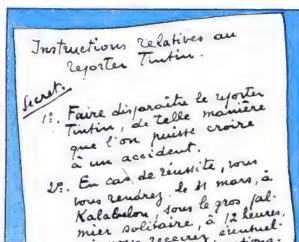 Instructions relatives au
reporter Tintin.
Secret.
1º. Faire disparaître le reporter
Tintin, de telle manière
que l'on puisse croire
à un accident.
2º. En cas de réussite, vous
vous rendrez, le 31 mars, à
Kalabelou, sous le gros pal-
mier solitaire, à 12 heures,
recevrez éventuel-